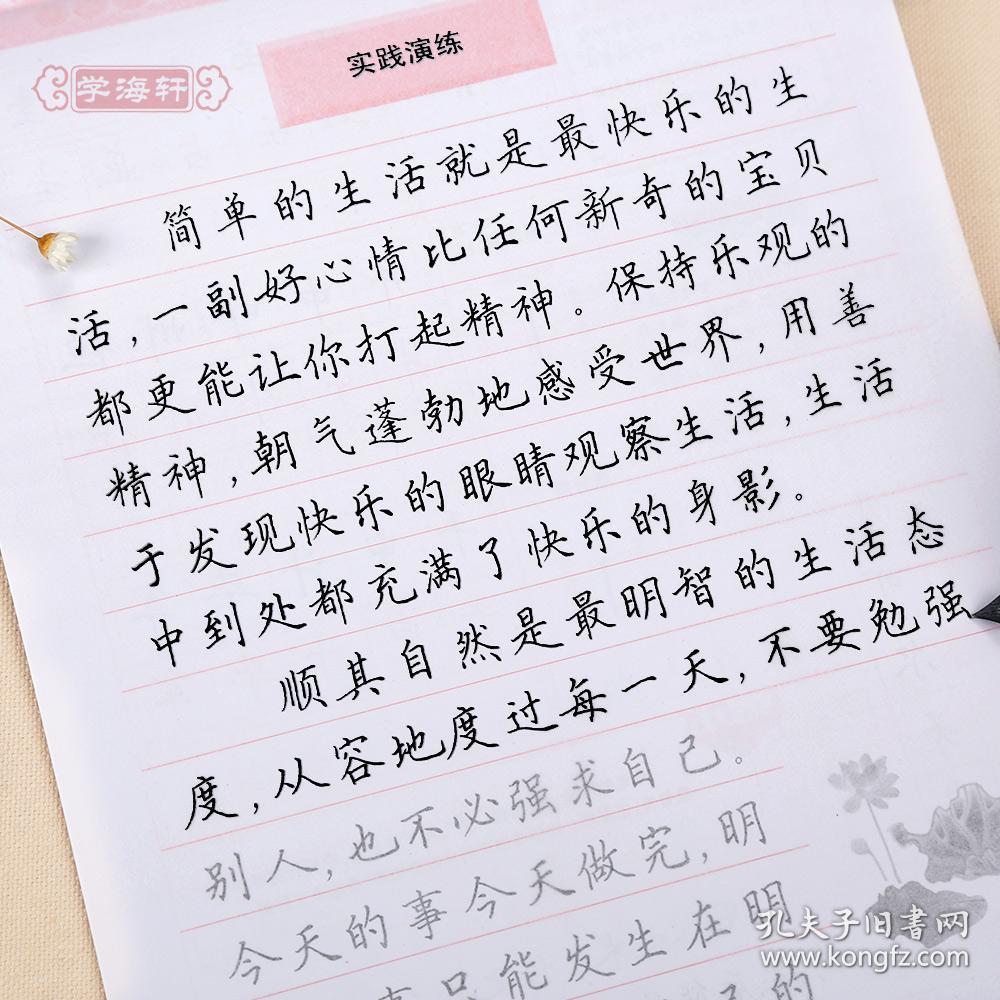 实践演练
学海轩
简单的生活就是最快乐的生
活,一副好心情比任何新奇的宝贝
都更能让你打起精神。保持乐观的
精神,朝气蓬勃地感受世界,用善
于发现快乐的眼睛观察生活,生活
中到处都充满了快乐的身影。
顺其自然是最明智的生活态
度,从容地度过每一天,不要勉强
别人,也不必强求自己。
今天的事今天做完,明
事只能发生在明
的
孔夫子旧书网
www.kongfz.com